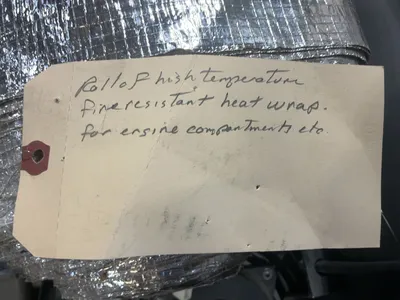 Roll of high temperature
fire resistant heat wrap.
for engine compartments etc.